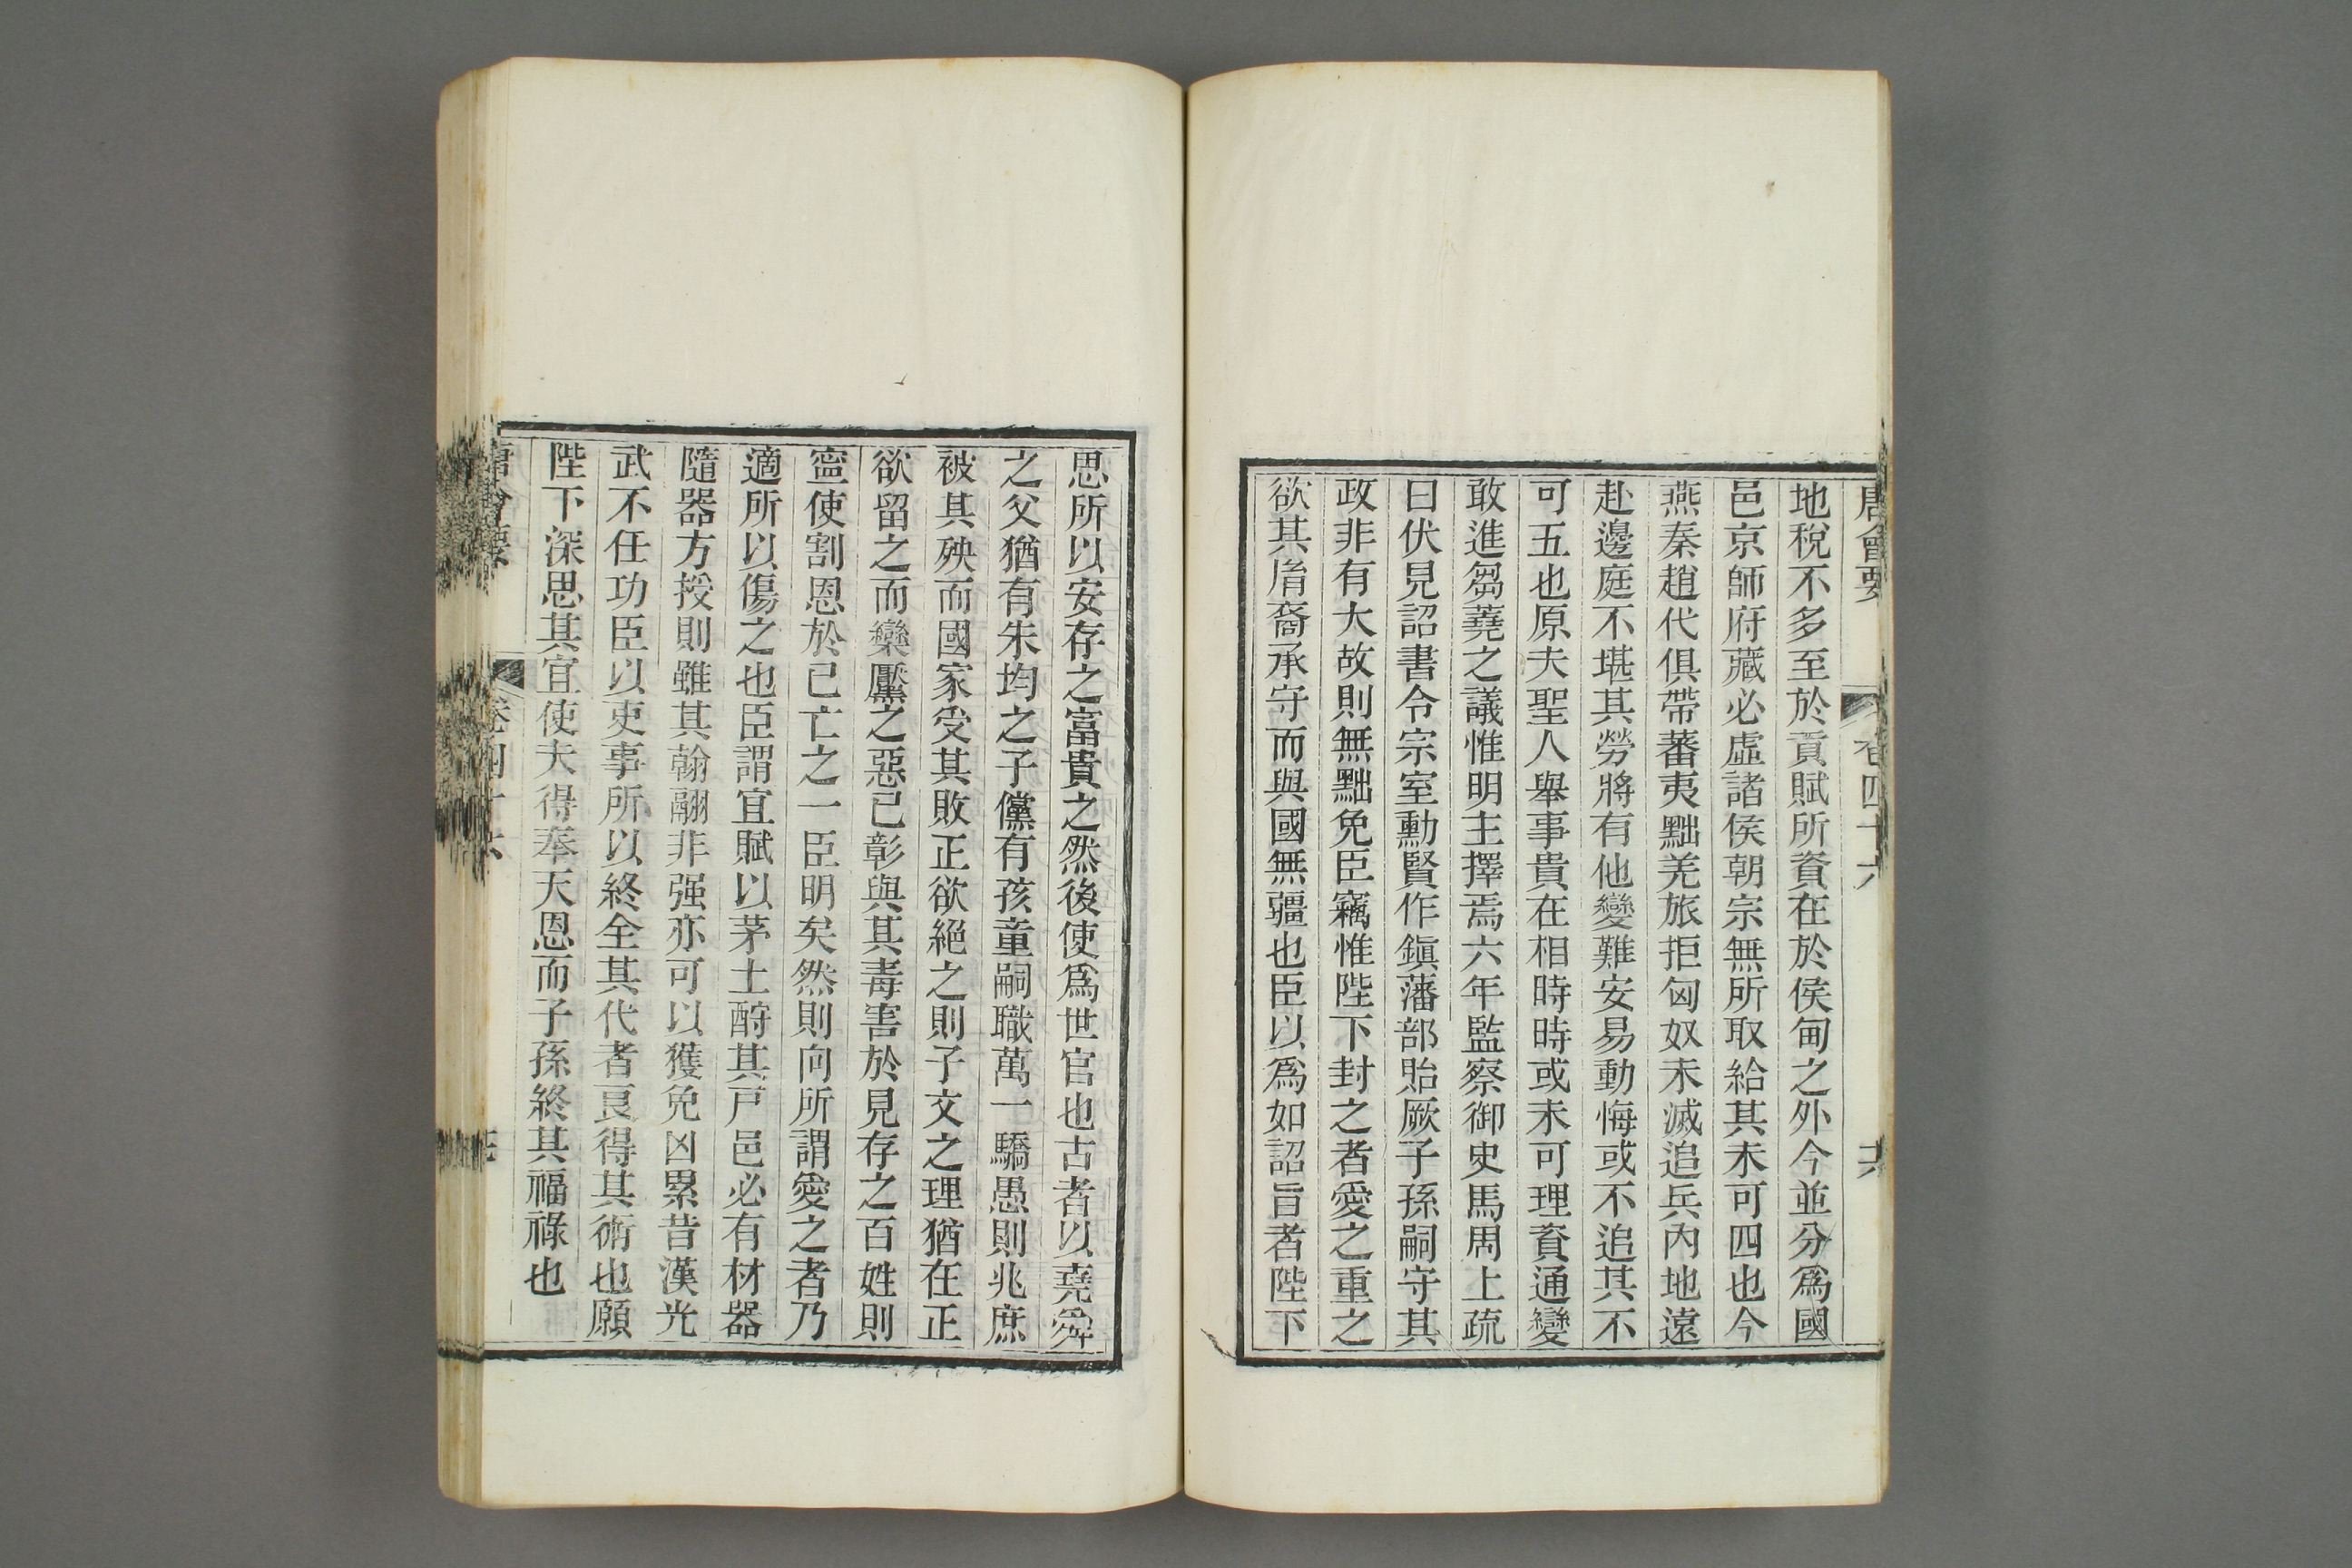 唐會要 卷四十六 六
地稅不多至於貢賦所資在於侯甸之外今並分爲國
邑京師府藏必虛諸侯朝宗無所取給其未可四也今
燕秦趙代俱帶蕃夷黜羌旅拒匈奴未滅追兵內地遠
赴邊庭不堪其勞將有他變難安易動悔或不追其不
可五也原夫聖人舉事貴在相時時或未可理資通變
敢進芻蕘之議惟明主擇焉六年監察御史馬周上疏
曰伏見詔書令宗室勳賢作鎭藩部貽厥子孫嗣守其
政非有大故則無黜免臣竊惟陛下封之者愛之重之
欲其胤裔承守而與國無疆也臣以爲如詔旨者陛下
思所以安存之富貴之然後使爲世官也古者以堯舜
之父猶有朱均之子儻有孩童嗣職萬一驕愚則兆庶
被其殃而國家受其敗正欲絕之則子文之理猶在正
欲留之而欒黶之惡已彰與其毒害於見存之百姓則
寍使割恩於已亡之一臣明矣然則向所謂愛之者乃
適所以傷之也臣謂宜賦以茅土酹其戸邑必有材器
隨器方授則雖其翰翮非强亦可以獲免凶累昔漢光
武不任功臣以吏事所以終全其代者良得其術也願
陛下深思其宜使夫得奉天恩而子孫終其福祿也
唐會要 卷四十六